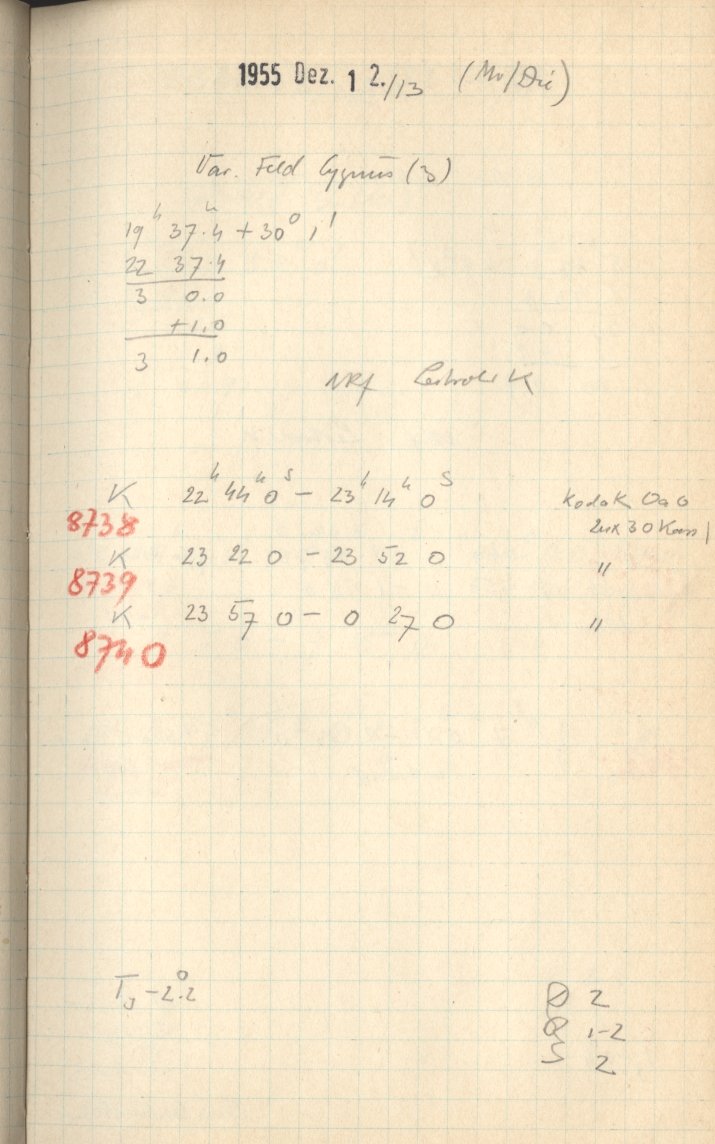 1955 Dez. 1 2./13 (Mo/Die)
Var. Feld Cygnus (3)
19ʰ 37.4 + 30° 1'
22 37.4
3 0.0
+1.0
3 1.0
K 22ʰ 44ᵐ 0ˢ – 23ʰ 14ᵐ 0ˢ Kodak OaO
8738
K 23 22 0 – 23 52 0 "
8739
K 23 57 0 – 0 27 0 "
8740
T, -2.°2
2
1-2
2